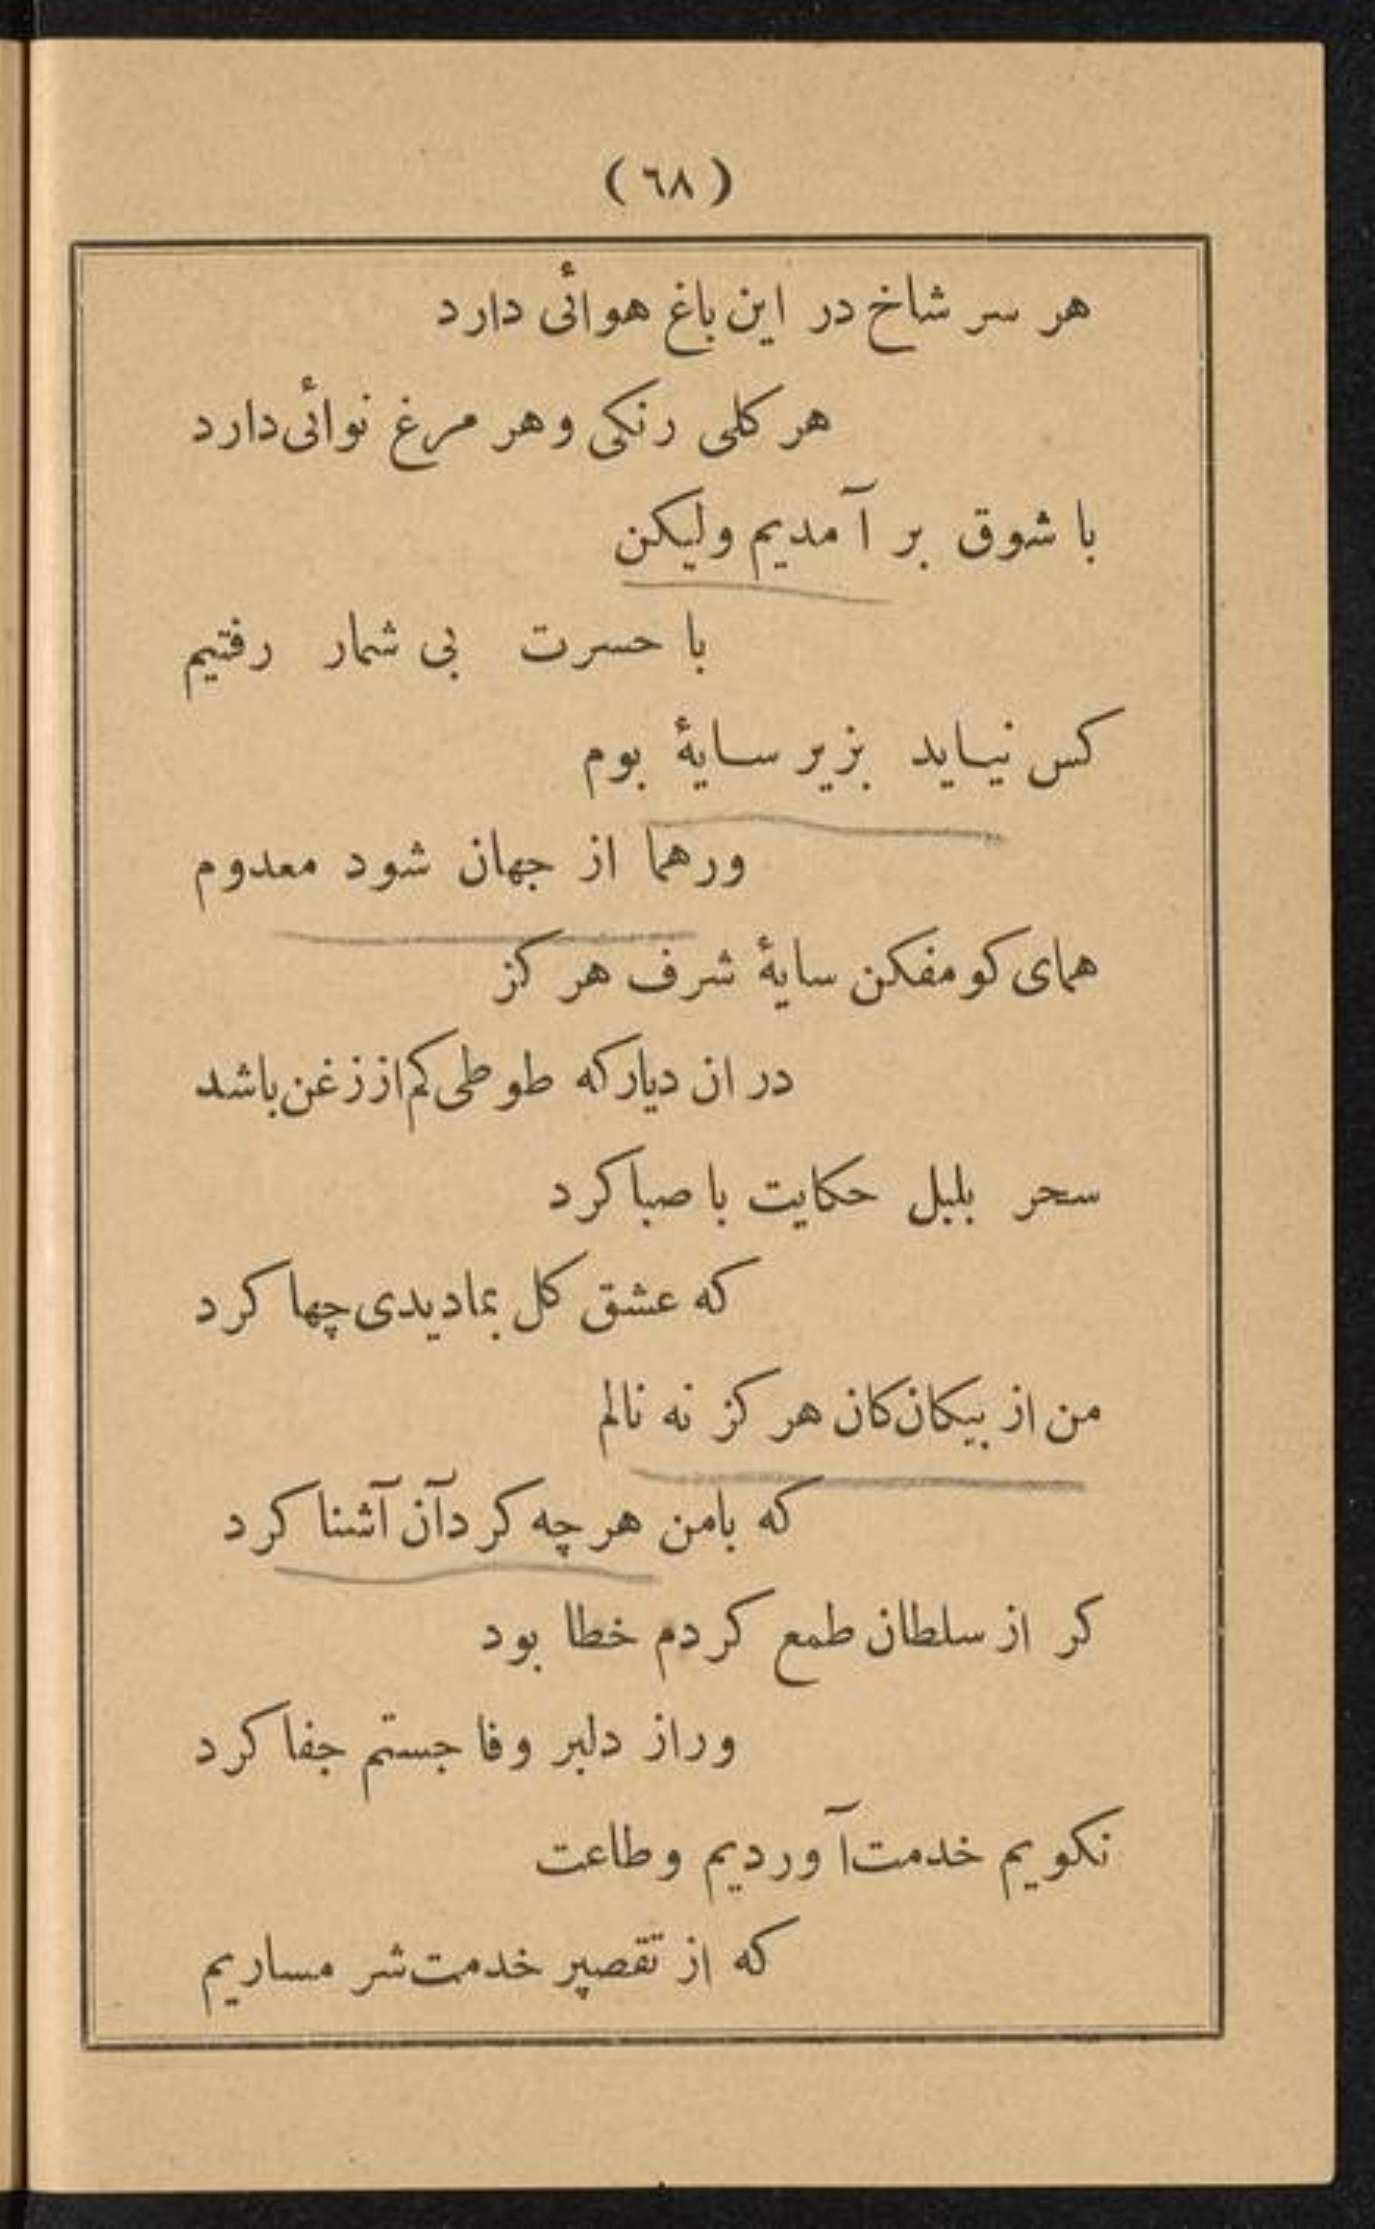 (٦٨)
هر سر شاخ در این باغ هوائی دارد
هر کلی رنکی و هر مرغ نوائی دارد
با شوق بر آمدیم ولیکن
با حسرت بی شمار رفتیم
کس نیاید بزیر سایۀ بوم
ور هما از جهان شود معدوم
همای کو مفکن سایۀ شرف هر کز
در ان دیار که طوطی کم از زغن باشد
سحر بلبل حکایت با صبا کرد
که عشق کل بمادیدی چها کرد
من از بیکانکان هر کز نه نالم
که بامن هر چه کرد آن آشنا کرد
کر از سلطان طمع کردم خطا بود
ور از دلبر وفا جستم جفا کرد
نکویم خدمت آوردیم وطاعت
که از تقصیر خدمت شر مساریم